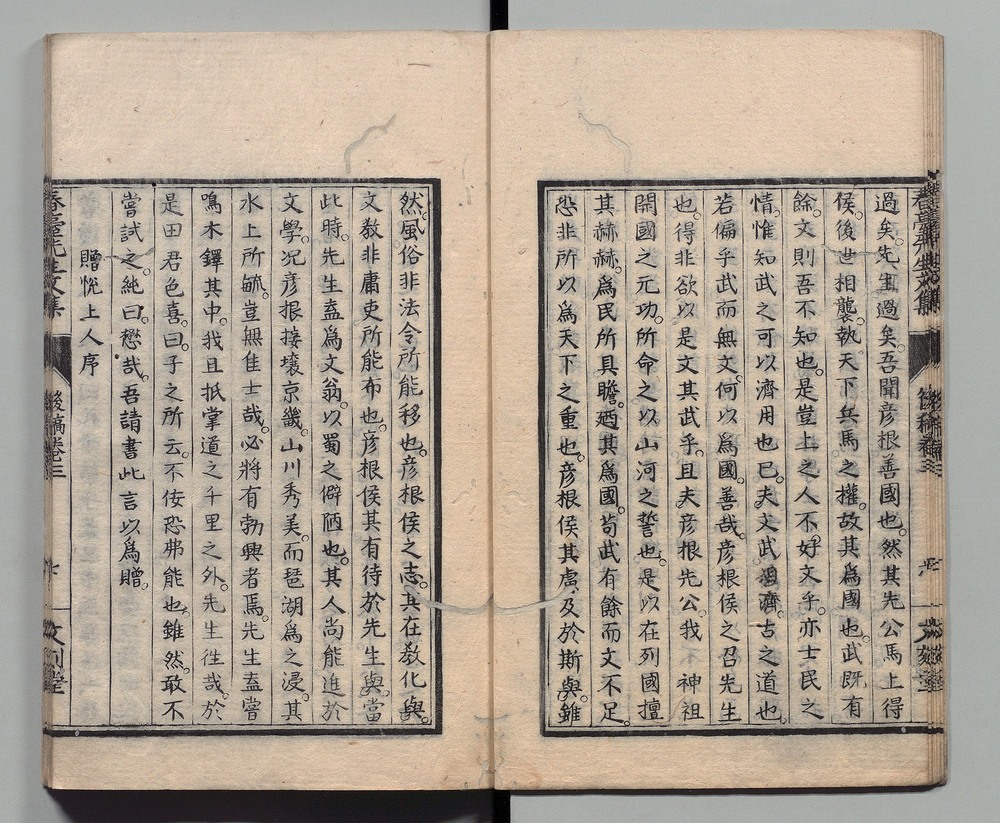 過矣先生過矣吾聞彦根善國也然其先公馬上得
侯後世相襲執天下兵馬之權故其爲國也武既有
餘文則吾不知也是豈上之人不好文乎亦士民之
情惟知武之可以濟用也已夫文武相濟古之道也
若偏乎武而無文何以爲國善哉彦根侯之召先生
也得非欲以是文其武乎且夫彦根先公我神祖
開國之元功所命之以山河之誓也是以在列國擅
其赫赫爲民所具瞻廼其爲國苟武有餘而文不足
恐非所以爲天下之重也彦根侯其慮及於斯與雖
然風俗非法令所能移也彦根侯之志其在敎化與
文敎非庸吏所能布也彦根侯其有待於先生與當
此時先生盍爲文翁以蜀之僻陋也其人尚能進於
文學况彦根接壤京畿山川秀美而琵湖爲之浸其
水上所毓豈無佳士哉必將有勃興者焉先生盍嘗
鳴木鐸其中我且抵掌道之千里之外先生往哉於
是田君色喜曰子之所云不佞恐弗能也雖然敢不
嘗試之純曰懋哉吾請書此言以爲贈
贈悅上人序
春臺先生文集
後稿卷三